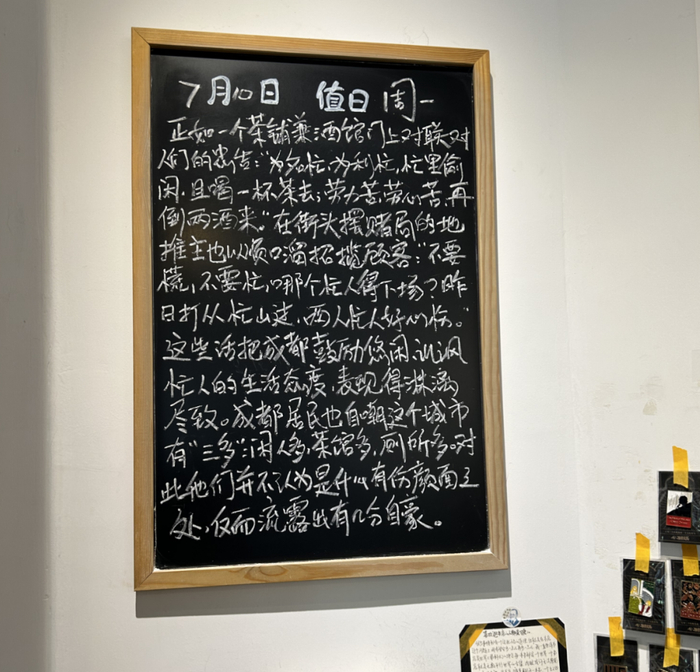 7月10日 值日 周一
正如一个茶铺兼酒馆门上对联对
人们的忠告:“为名忙,为利忙,忙里偷
闲,且喝一杯茶去;劳力苦,劳心苦,再
倒两酒来。”在街头摆赌局的地
摊主也以顺口溜招揽顾客:“不要
慌,不要忙,哪个忙人得下场?昨
日打从忙山过,两人忙人好心伤。”
这些话把成都鼓励悠闲、讥讽
忙人的生活态度,表现得淋漓
尽致。成都居民也自嘲这个城市
有“三多”:闲人多,茶馆多,厕所多。对
此他们并不认为是什么有伤颜面之
处,反而流露出有几分自豪。